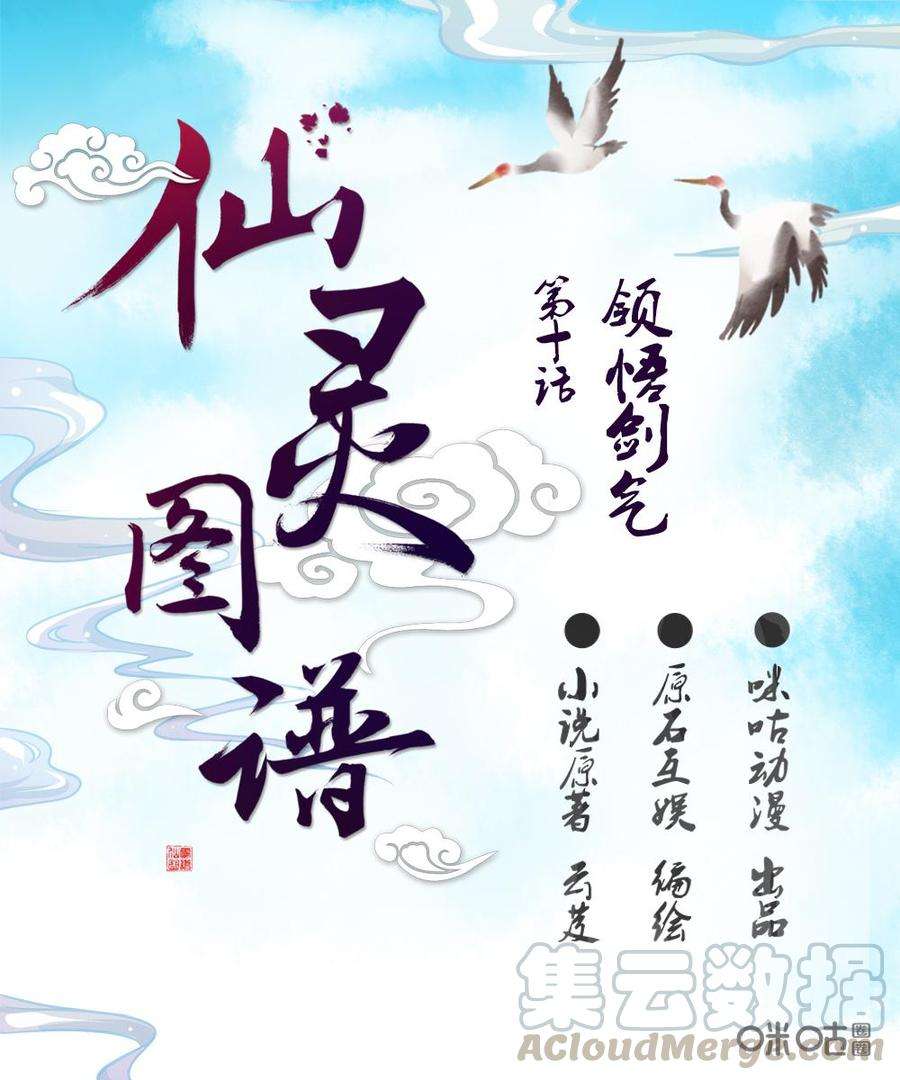 仙灵图谱
领悟剑气
第十话
咪咕动漫 出品
原石互娱 编绘
小说原著 云芨
集云数据
ACloudMerge.com
咪咕圈圈